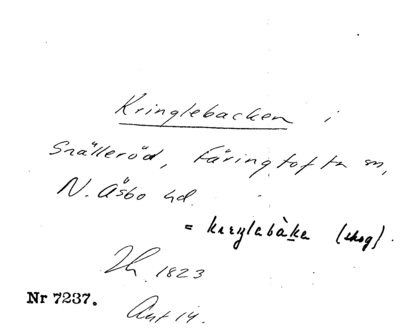 Kringlebacken i
Snälleröd, Färingtofta sn,
N. Åsbo hd.
= krɩŋlabàka (skog).
Lh. 1823
Nr 7237.